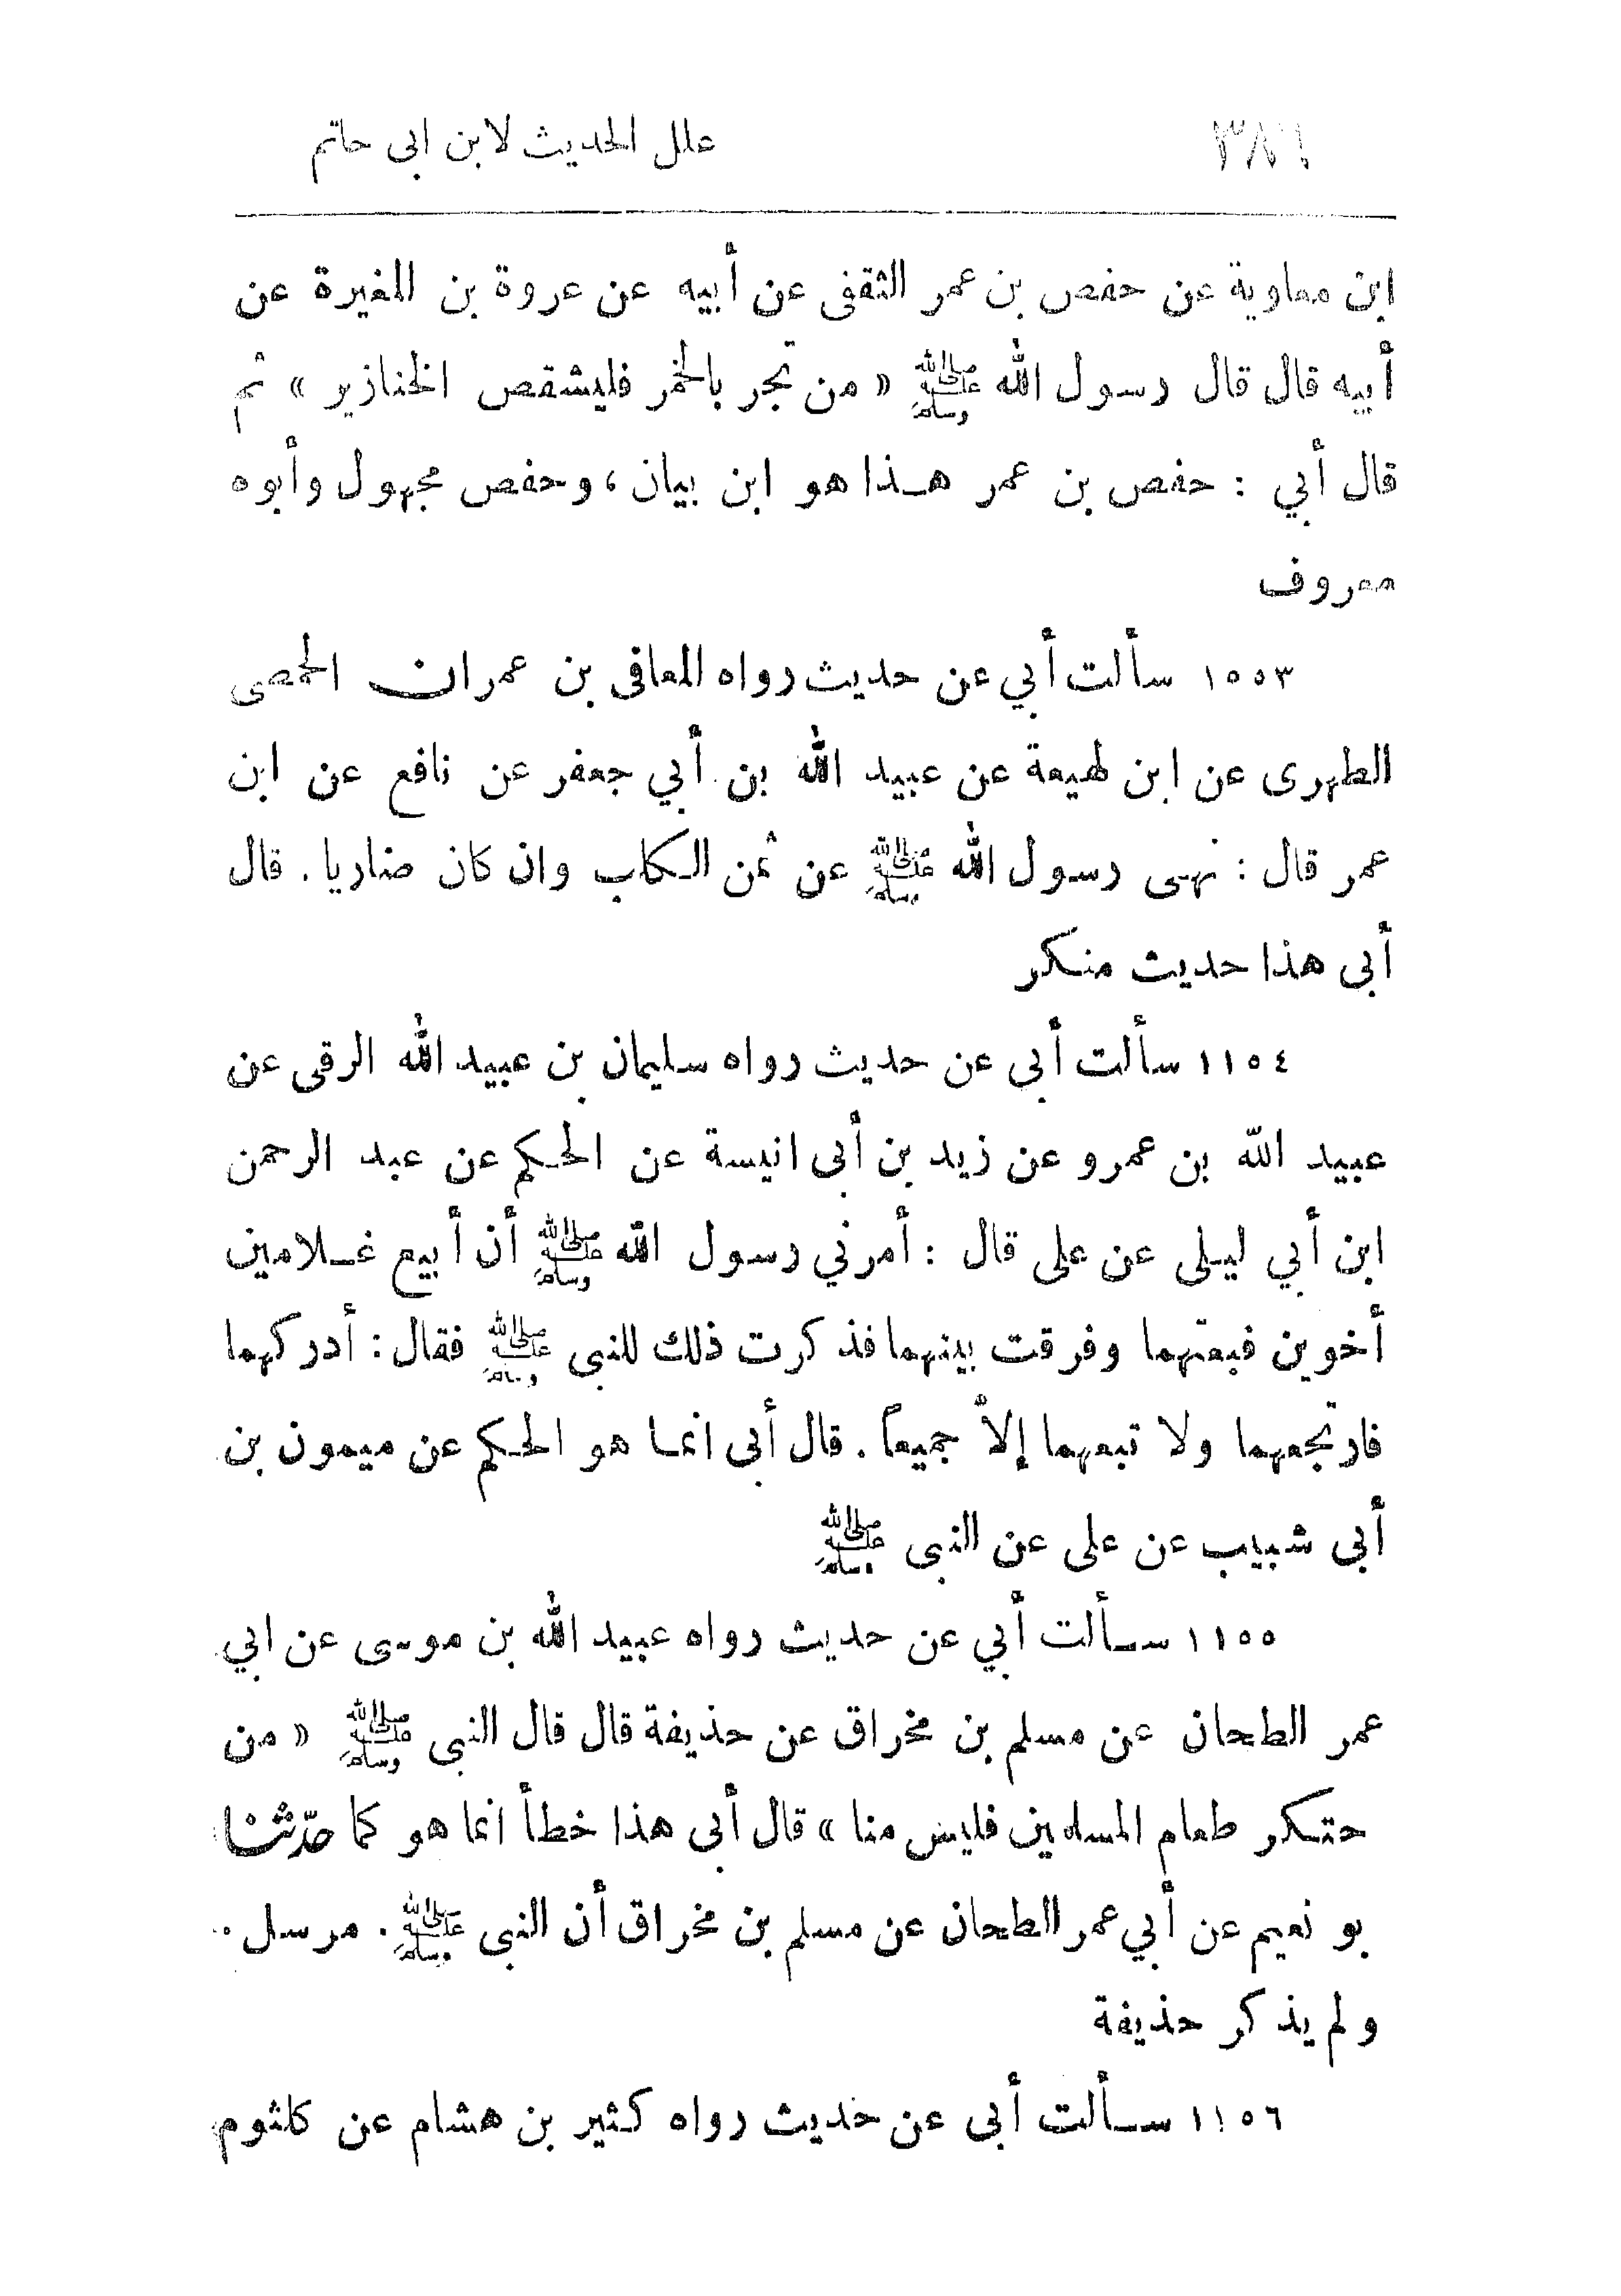 ٣٨٦ علل الحديث لابن ابى حاتم
ابن معاوية عن حفص بن عمر الثقفى عن أبيه عن عروة بن المغيرة عن
أبيه قال قال رسول الله ﷺ « من تجر بالخمر فليشقص الخنازير » ثم
قال أبي : حفص بن عمر هـذا هو ابن بيان ، وحفص مجهول وأبوه
معروف
١٥٥٣ سألت أبي عن حديث رواه المعافى بن عمران الحمصى
الطهرى عن ابن لهيعة عن عبيد الله بن أبي جعفر عن نافع عن ابن
عمر قال : نهى رسول الله ﷺ عن ثمن الـكلب وان كان ضاريا . قال
أبى هذا حديث منـكر
١١٥٤ سألت أبى عن حديث رواه سليمان بن عبيد الله الرقى عن
عبيد الله بن عمرو عن زيد بن أبى انيسة عن الحـكم عن عبد الرحمن
ابن أبي ليـلى عن على قال : أمرني رسول الله ﷺ أن أبيع غـلامين
أخوين فبعتهما وفرقت بينهما فذكرت ذلك للنبى ﷺ فقال : أدركهما
فارتجعهما ولا تبعهما إلاّ جميعاً . قال أبى انمـا هو الحـكم عن ميمون بن
أبى شبيب عن على عن النبى ﷺ
١١٥٥ سـألت أبي عن حديث رواه عبيد الله بن موسى عن ابي
عمر الطحان عن مسلم بن مخراق عن حذيفة قال قال النبى ﷺ « من
حتـكر طعام المسلمين فليس منا » قال أبى هذا خطأ انما هو كما حدّثنا
بو نعيم عن أبي عمر الطحان عن مسلم بن مخراق أن النبى ﷺ . مرسل .
ولم يذكر حذيفة
١١٥٦ سـألت أبى عن حديث رواه كـثير بن هشام عن كلثوم